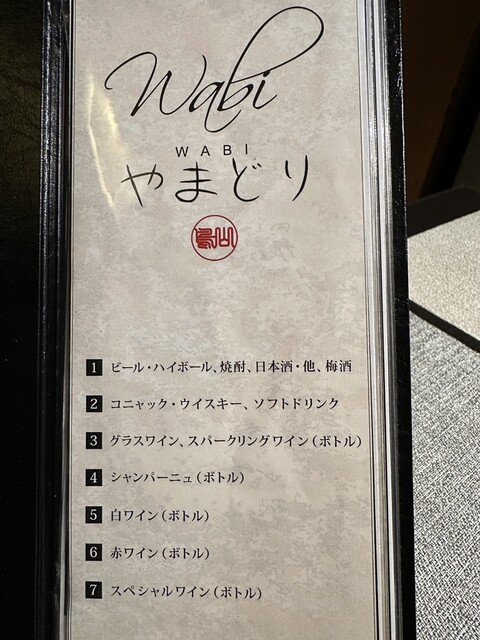 Wabi
WABI
やまどり
山鳥
1 ビール・ハイボール、焼酎、日本酒・他、梅酒
2 コニャック・ウイスキー、ソフトドリンク
3 グラスワイン、スパークリングワイン（ボトル）
4 シャンパーニュ（ボトル）
5 白ワイン（ボトル）
6 赤ワイン（ボトル）
7 スペシャルワイン（ボトル）